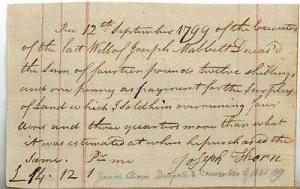 Rec 12th September 1799 of the Executors
of the last Will of Joseph Mabbett Decea'd
the Sum of fourteen pounds twelve shillings
and one penny as payment for the Surplus
of Land which I Sold him overruning four
Acres and three quarters more than what
it was estimated at when he purchased the
Same. Pr me
Joseph Thorne
£14.12.1
Delegate to Convention of